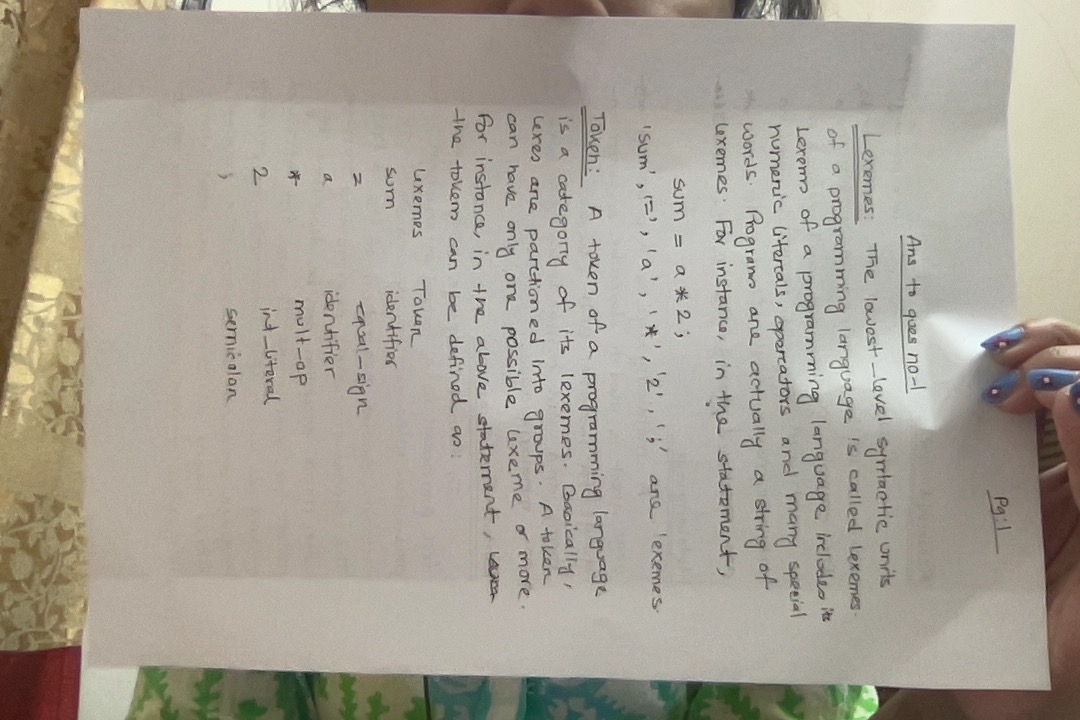 Pg:1
Ans to ques no-1
Lexemes: The lowest-level syntactic units
of a programming language is called lexemes.
Lexems of a programming language includes its
numeric literals, operators and many special
words. Programs are actually a string of
lexemes. For instance, in the statement,
sum = a * 2 ;
'sum', '=', 'a', '*', '2', ';' are lexemes.
Token: A token of a programming language
is a category of its lexemes. Basically,
lexes are partioned into groups. A token
can have only one possible lexeme or more.
For instance, in the above statement,
the tokens can be defined as:
Lexemes Token
sum identifier
= equal-sign
a identifier
* mult-op
2 int_literal
; semicolon